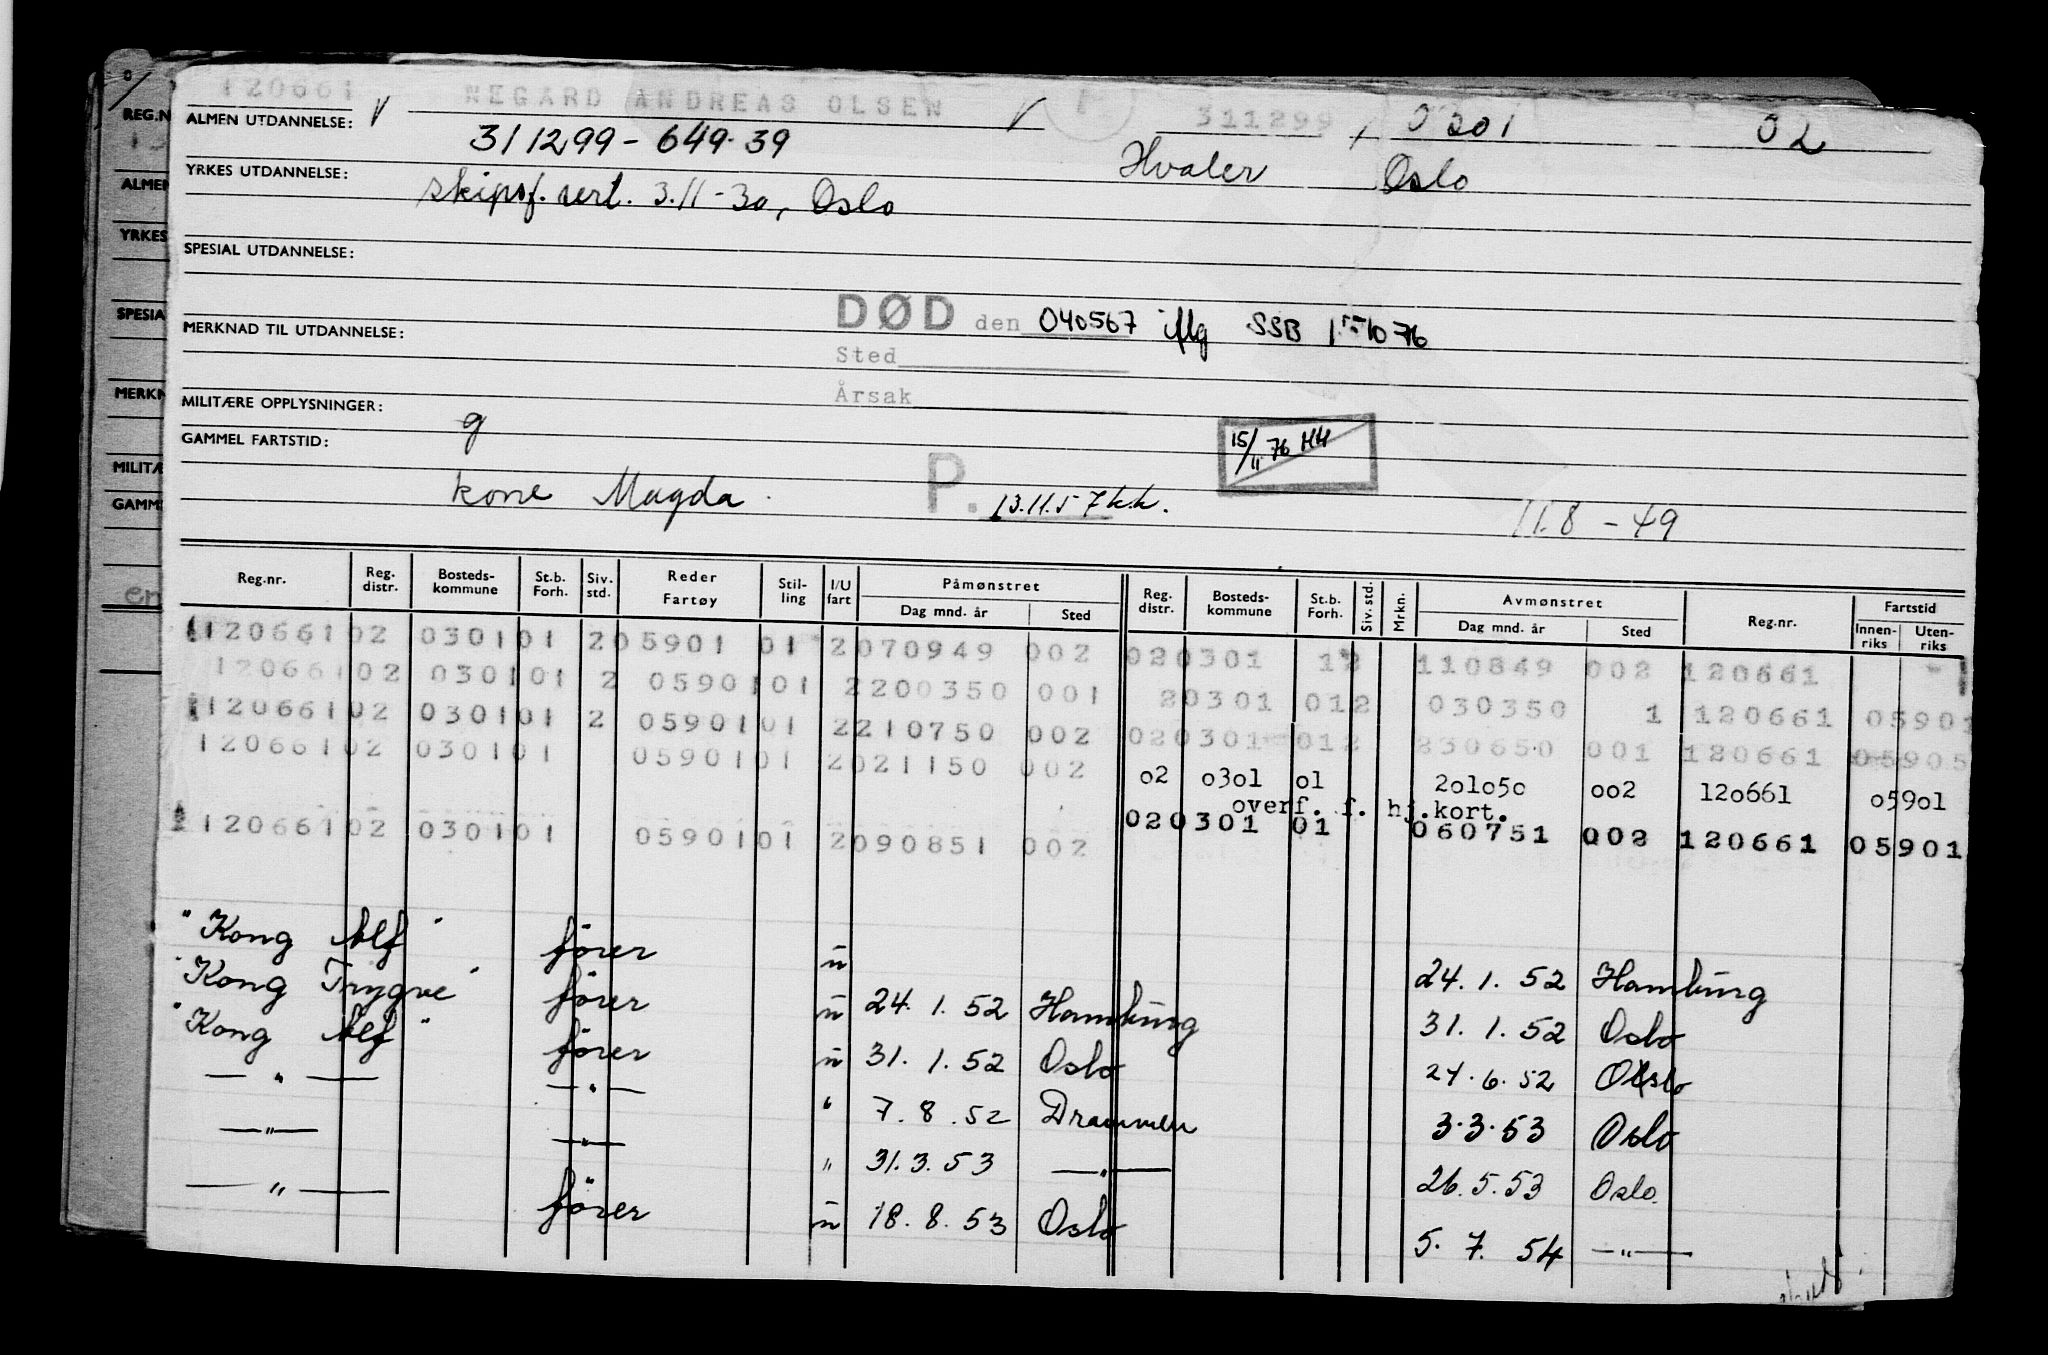 120661 NEGARD ANDREAS OLSEN 311299 0301 02
ALMEN UTDANNELSE: 311299 - 649.39 Hvaler Oslo
YRKES UTDANNELSE: skipsf. sert. 3.11-30, Oslo
SPESIAL UTDANNELSE:
DØD den 040567 iflg SSB
MERKNAD TIL UTDANNELSE:
Sted
Årsak
MILITÆRE OPPLYSNINGER: g
15/11 76 HH
GAMMEL FARTSTID:
kone Magda. P. 13.11.57 k.k. 11.8-49
Reg.nr. Reg. distr. Bosteds-kommune St.b. Forh. Siv. std. Reder Fartøy Stil-ling I/U fart Påmønstret Dag mnd. år Sted Reg. distr. Bosteds-kommune St.b. Forh. Siv. std. Mrkn. Avmønstret Dag mnd. år Sted Reg.nr. Fartstid Innen-riks Uten-riks
120661 02 0301 01 2 05901 01 2 070949 002 02 0301 1 2 110849 002 120661
120661 02 0301 01 2 05901 01 2 200350 001 2 0301 01 2 030350 1 120661 05901
120661 02 0301 01 2 05901 01 2 210750 002 02 0301 01 2 230650 001 120661 05905
120661 02 0301 01 05901 01 2 021150 002 o2 o3o1 o1 2o1o5o oo2 12o661 o59o1
overf. f. hj.kort.
120661 02 0301 01 05901 01 2 090851 002 02 0301 01 060751 002 120661 05901
"Kong Alf" fører u 24.1.52 Hamburg
"Kong Trygve" fører u 24.1.52 Hamburg 31.1.52 Oslo
"Kong Alf" fører u 31.1.52 Oslo 24.6.52 Oslo
— " — — " — " 7.8.52 Drammen 3.3.53 Oslo
— " — — " — " 31.3.53 — " — 26.5.53 Oslo.
— " — fører u 18.8.53 Oslo 5.7.54 — " —